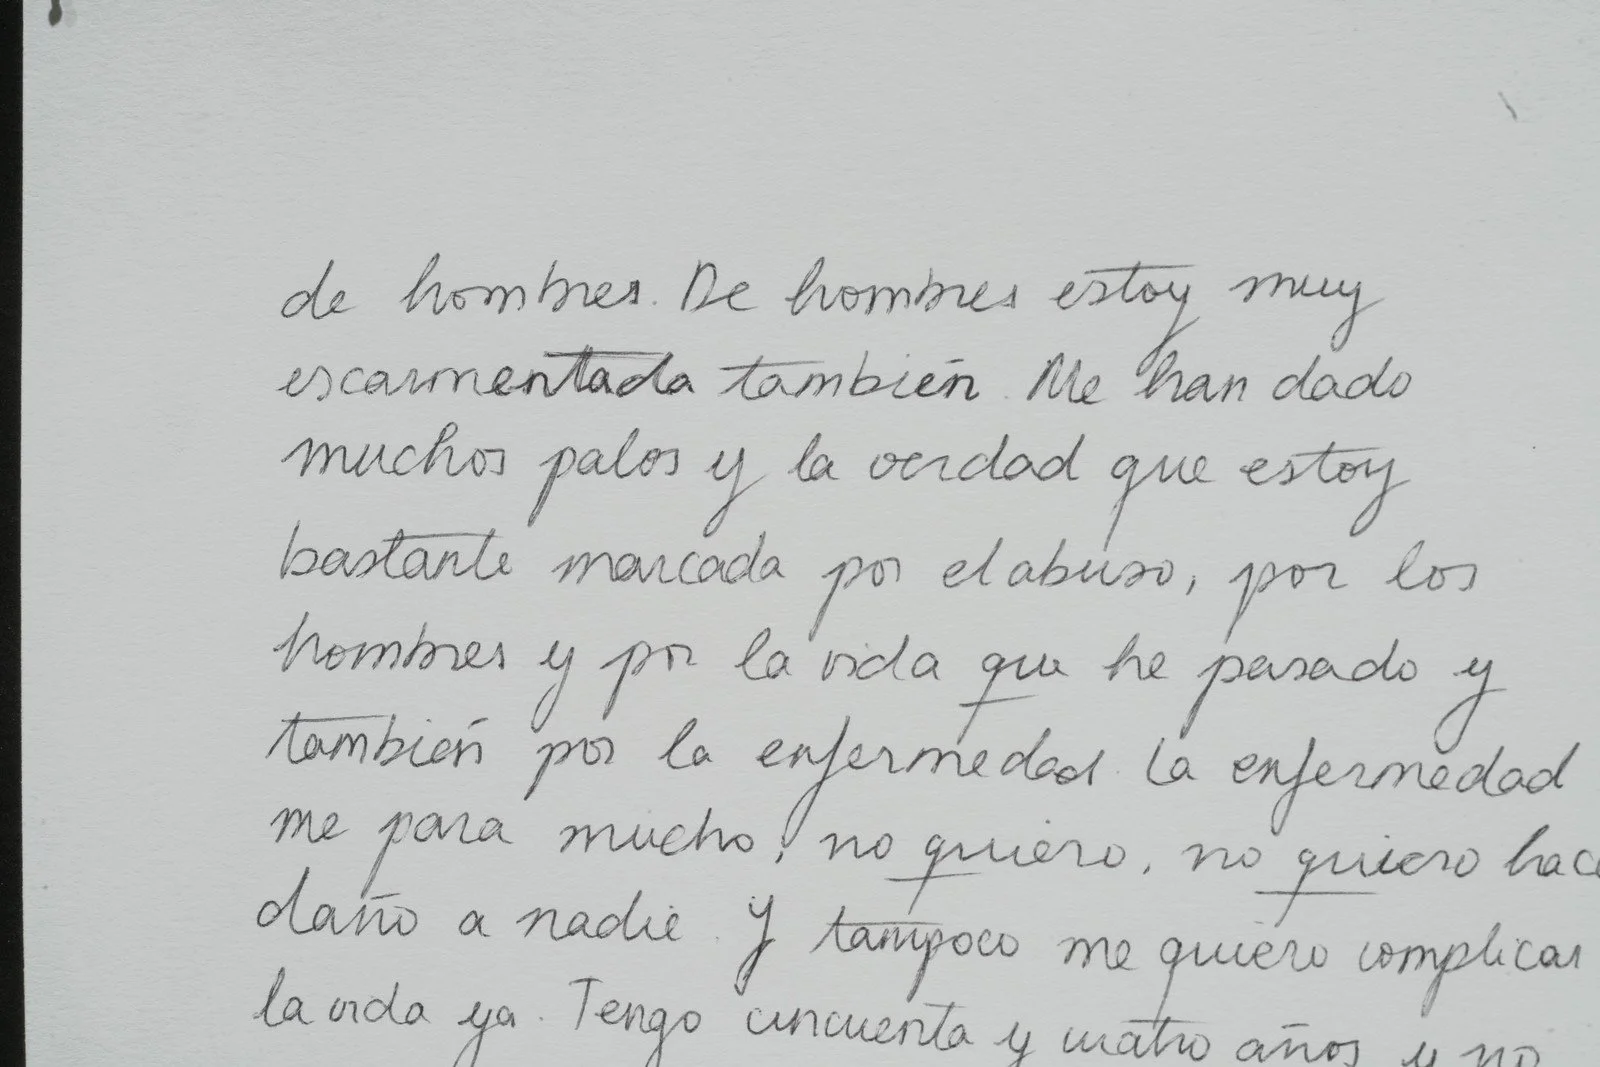 de hombres. De hombres estoy muy
escarmentada también. Me han dado
muchos palos y la verdad que estoy
bastante marcada por el abuso, por los
hombres y por la vida que he pasado y
también por la enfermedad. La enfermedad
me para mucho, no quiero, no quiero hace
daño a nadie. Y tampoco me quiero complicar
la vida ya. Tengo cincuenta y cuatro años y no